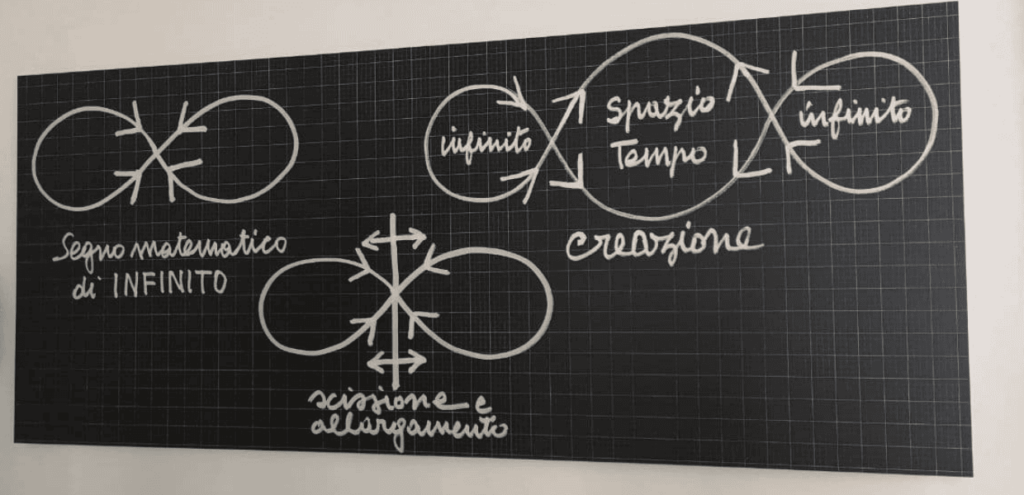 Segno matematico
di INFINITO
scissione e
allargamento
infinito
Spazio
Tempo
infinito
creazione